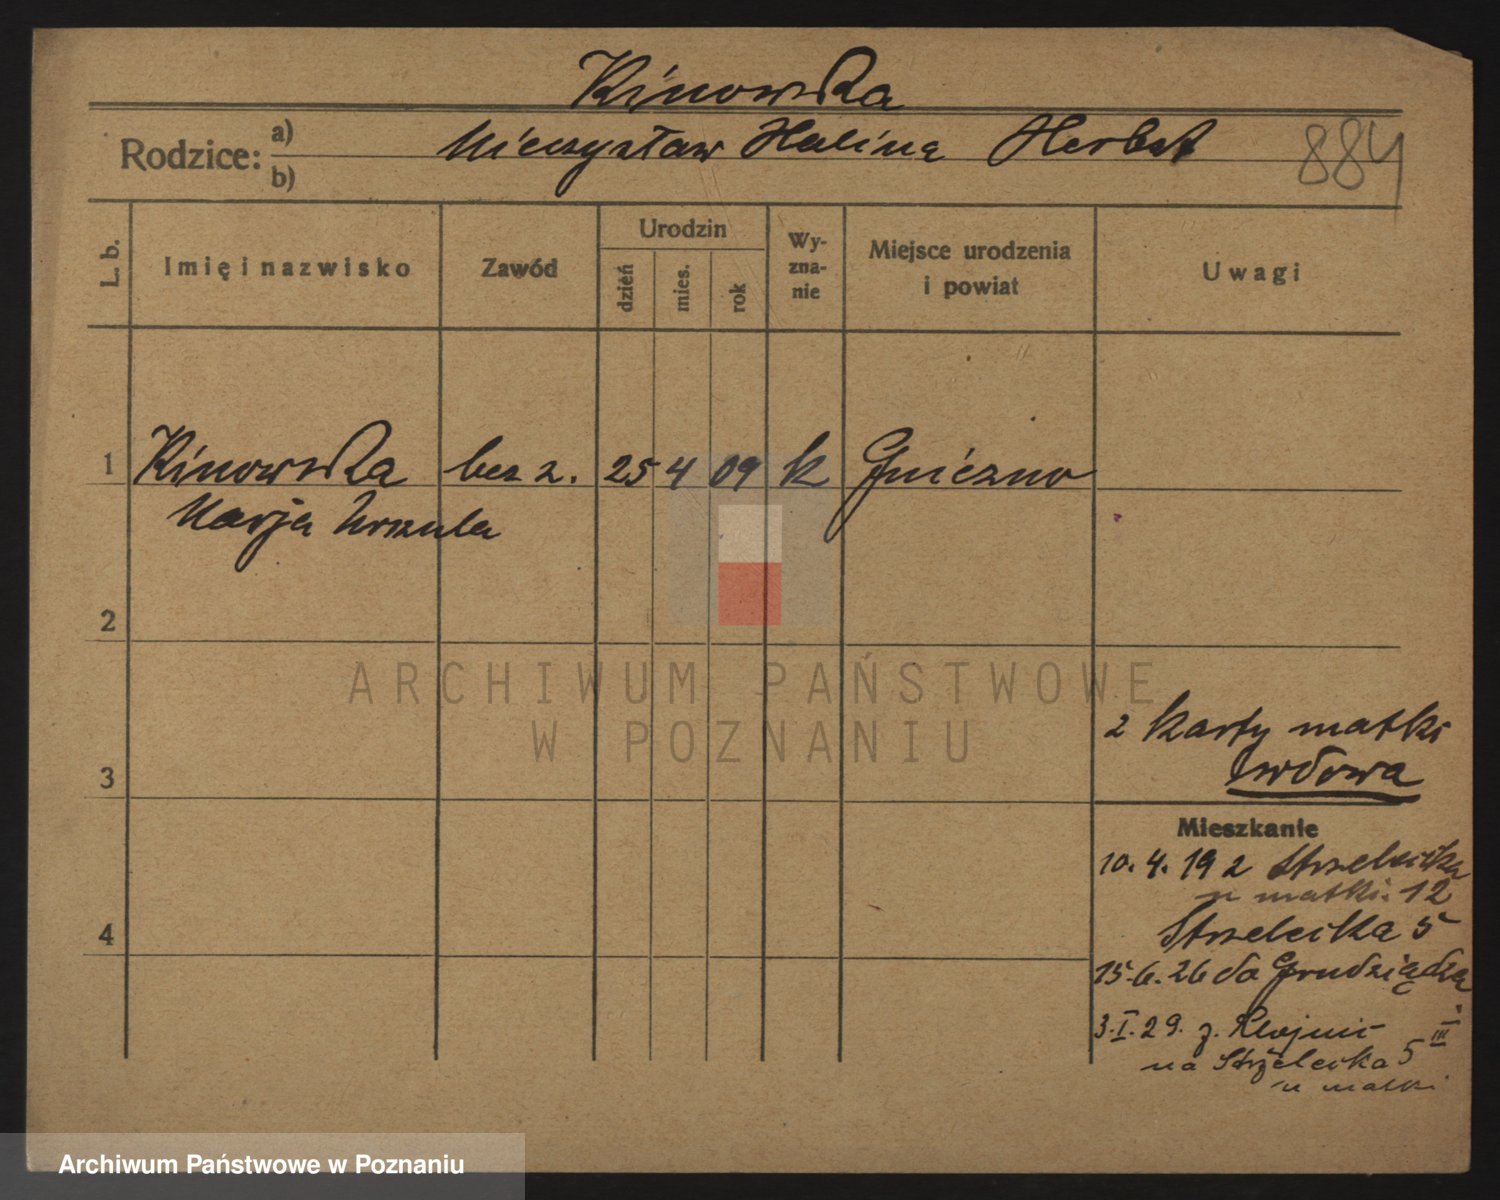 Kinowska
Rodzice: a) Mieczysław Halina Herbst 884
b)
L. b. Imię i nazwisko Zawód Urodzin dzień mies. rok Wy-zna-nie Miejsce urodzenia i powiat Uwagi
1 Kinowska bez z. 25 4 09 k Gniezno
Marja Urszula
2
ARCHIWUM PAŃSTWOWE
W POZNANIU
2 karty matki
wdowa
3
Mieszkanie
10. 4. 19 2 Strzelecka
u matki. 12
Strzelecka 5
4
15.6.26 do Grudziądza
3.I.29. z
na Strzelecka 5 III
u matki
Archiwum Państwowe w Poznaniu